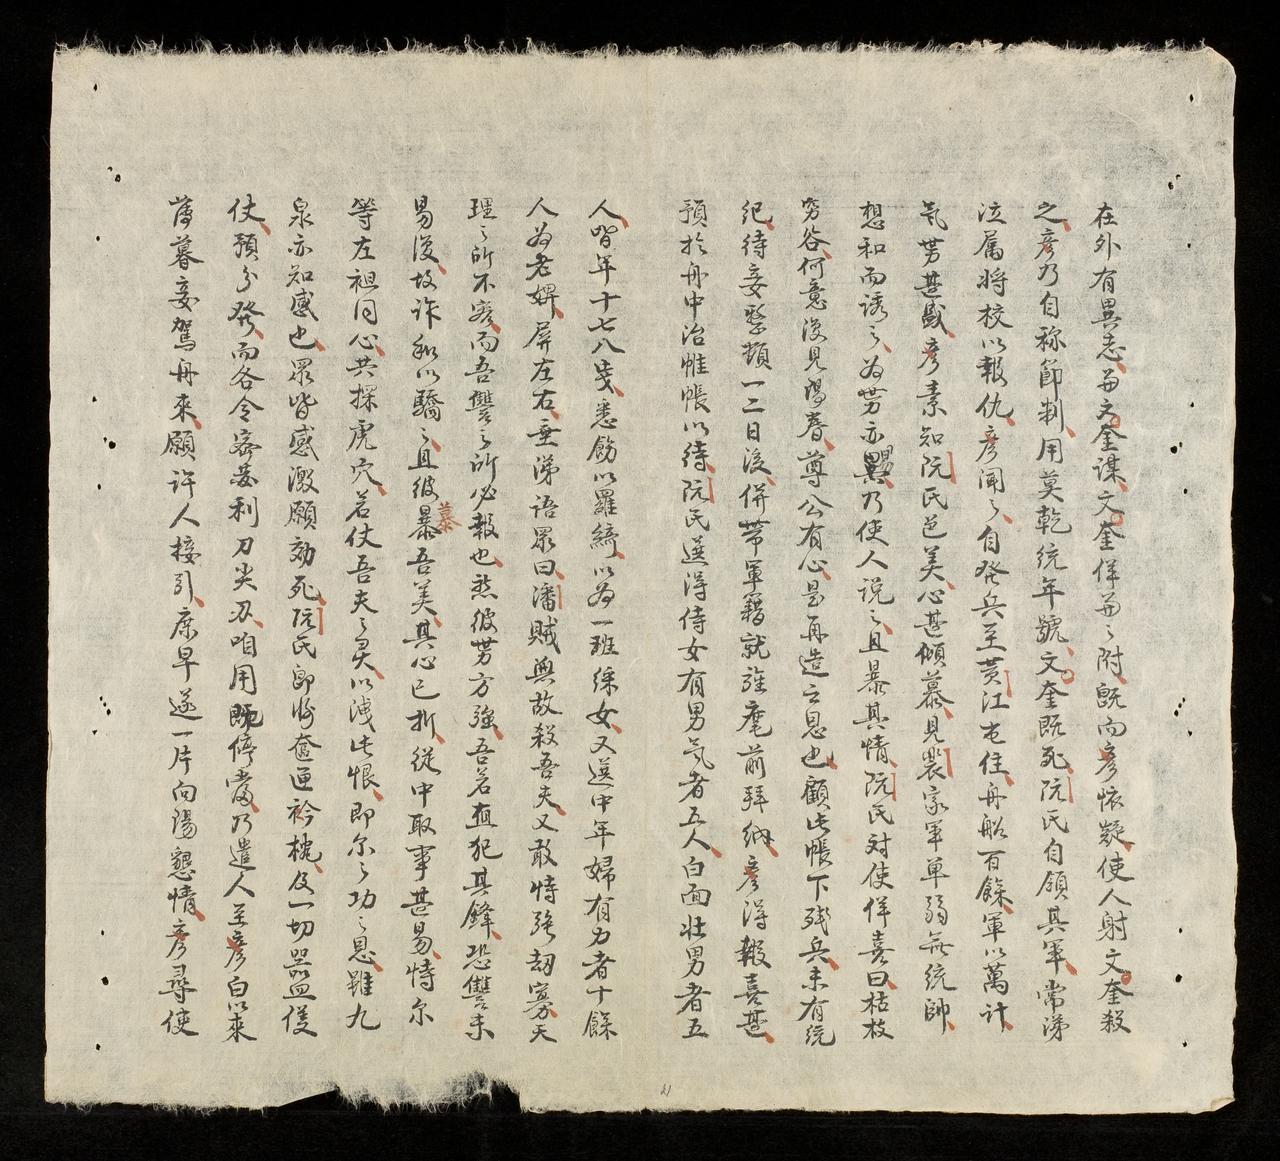 在外有異志、与文奎謀、文奎佯与之附、既而彦恠疑、使人射文奎殺
之、彦乃自称節制、用莫乾統年號、文奎既死、阮氏自領其軍、常涕
泣属将校以報仇、彦聞之、自発兵至黄江屯住、舟船百餘、軍以萬計
氣势甚盛、彦素知阮氏色美、心甚傾慕、見裴家軍单弱無統帥、
想和而誘之、为势亦易、乃使人説之、且暴其情、阮氏対使佯喜曰枯枝
穷谷、何意復見陽春、尊公有心、是再造之恩也、顧此帳下残兵、未有統
紀、待妾整頓一二日後、併带軍籍就旌麾前拜納、彦得報喜甚、
預於舟中治帷帳以待阮氏選得侍女有男氣者五人、白面壮男者五
人、皆年十七八歲、悉餙以羅綺、以为一班綵女、又選中年婦有力者十餘
人为老婢、屏左右、垂涕語眾曰、潘賊無故殺吾夫、又敢恃強刼寡、天
理之所不容、而吾讐之所必報也、然彼势方強、吾若直犯其鋒、恐讐未
易復、故詐和以驕之、且彼慕吾美、其心已折、従中取事甚易、恃尔
等左袒同心、共探虎穴、若仗吾夫之灵、以洩此恨、即尔之功之恩、雖九
泉亦知感也、眾皆感激願効死、阮氏即将奩匣衿枕、及一切器皿儀
仗、預分発、而各令密藏利刀尖刃、咱用既停當、乃遣人至彦白以來
薄暮妾駕舟來、願許人接引、庶早遂一片向陽懇情、彦尋使
21